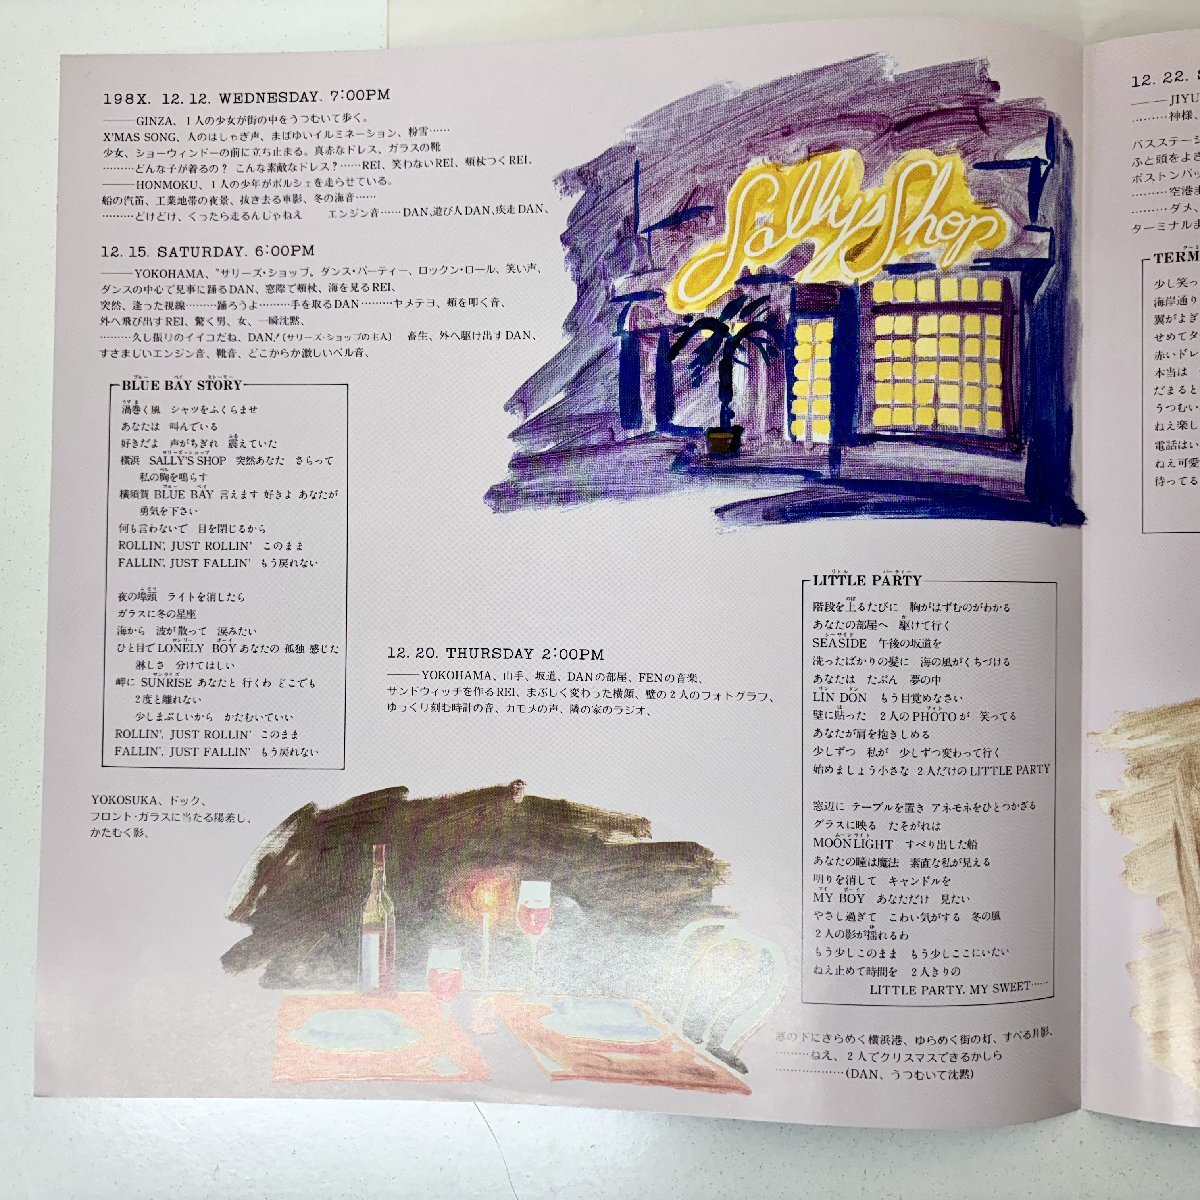 198X. 12. 12. WEDNESDAY. 7:00PM
——GINZA、1人の少女が街の中をうつむいて歩く。
X'MAS SONG、人のはしゃぎ声、まばゆいイルミネーション、粉雪……
少女、ショーウィンドーの前に立ち止まる。真赤なドレス、ガラスの靴
………どんな子が着るの? こんな素敵なドレス?……REI、笑わないREI、頬杖つくREI、
——HONMOKU、1人の少年がポルシェを走らせている。
船の汽笛、工業地帯の夜景、抜き去る車影、冬の海音……
………どけどけ、くったら走るんじゃねえ エンジン音……DAN、遊び人DAN、疾走DAN、
12. 15. SATURDAY. 6:00PM
——YOKOHAMA、〝サリーズ・ショップ〟ダンス・パーティー、ロックン・ロール、笑い声、
ダンスの中心で見事に踊るDAN、窓際で頬杖、海を見るREI、
突然、逢った視線………踊ろうよ………手を取るDAN………ヤメテヨ、頬を叩く音、
外へ飛び出すREI、驚く男、女、一瞬沈黙、
………久し振りのイイコだね、DAN!(サリーズ・ショップの主人) 畜生、外へ駆け出すDAN、
すさまじいエンジン音、靴音、どこからか激しいベル音、
Sally's Shop
ブルー ベイ ストーリー
BLUE BAY STORY
うずま
渦巻く風 シャツをふくらませ
あなたは 叫んでいる
好きだよ 声がちぎれ 震えていた
サリーズ・ショップ
横浜 SALLY'S SHOP 突然あなた さらって
私の胸を鳴らす
ブルー ベイ
横須賀 BLUE BAY 言えます 好きよ あなたが
勇気を下さい
何も言わないで 目を閉じるから
ROLLIN', JUST ROLLIN' このまま
FALLIN', JUST FALLIN' もう戻れない
ふとう
夜の埠頭 ライトを消したら
ガラスに冬の星座
海から 波が散って 涙みたい
ロンリー ボーイ
ひと目でLONELY BOYあなたの 孤独 感じた
淋しさ 分けてほしい
サンライズ
岬に SUNRISE あなたと 行くわ どこでも
2度と離れない
少しまぶしいから かたむいていい
ROLLIN', JUST ROLLIN' このまま
FALLIN', JUST FALLIN' もう戻れない
YOKOSUKA、ドック、
フロント・ガラスに当たる陽差し、
かたむく影、
12. 20. THURSDAY 2:00PM
——YOKOHAMA、山手、坂道、DANの部屋、FENの音楽、
サンドウィッチを作るREI、まぶしく変わった横顔、壁の2人のフォトグラフ、
ゆっくり刻む時計の音、カモメの声、隣の家のラジオ、
リトル パーティー
LITTLE PARTY
のぼ
階段を上るたびに 胸がはずむのがわかる
か
あなたの部屋へ 駆けて行く
シーサイド
SEASIDE 午後の坂道を
洗ったばかりの髪に 海の風がくちづける
あなたは たぶん 夢の中
リン ドン
LIN DON もう目覚めなさい
は フォト
壁に貼った 2人のPHOTOが 笑ってる
あなたが肩を抱きしめる
少しずつ 私が 少しずつ変わって行く
始めましょう小さな 2人だけのLITTLE PARTY
窓辺に テーブルを置き アネモネをひとつかざる
グラスに映る たそがれは
ムーンライト
MOONLIGHT すべり出した船
あなたの瞳は魔法 素直な私が見える
明りを消して キャンドルを
マイ ボーイ
MY BOY あなただけ 見たい
やさし過ぎて こわい気がする 冬の風
ゆ
2人の影が揺れるわ
もう少しこのまま もう少しここにいたい
ねえ止めて時間を 2人きりの
LITTLE PARTY, MY SWEET……
窓の下にきらめく横浜港、ゆらめく街の灯、すべる月影、
………ねえ、2人でクリスマスできるかしら
………………(DAN、うつむいて沈黙)
12. 22.
——JIYU
………神様、
バスステーシ
ふと頭をよぎ
ボストンバッ
………空港ま
………ダメ、
ターミナルま
TERM
少し笑っ
海岸通り
翼がよぎ
せめてタ
赤いドレ
本当は
だまると
うつむい
ねえ楽し
電話はい
ねえ可愛
待ってる